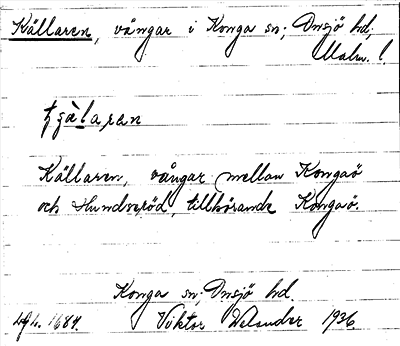 Källaren, vångar i Konga sn; Onsjö hd,
Malm. l.
Källaren, vångar mellan Kongaö
och Hundseröd, tillhörande Kongaö.
Konga sn; Onsjö hd.
1684. Viktor Welander 1936.